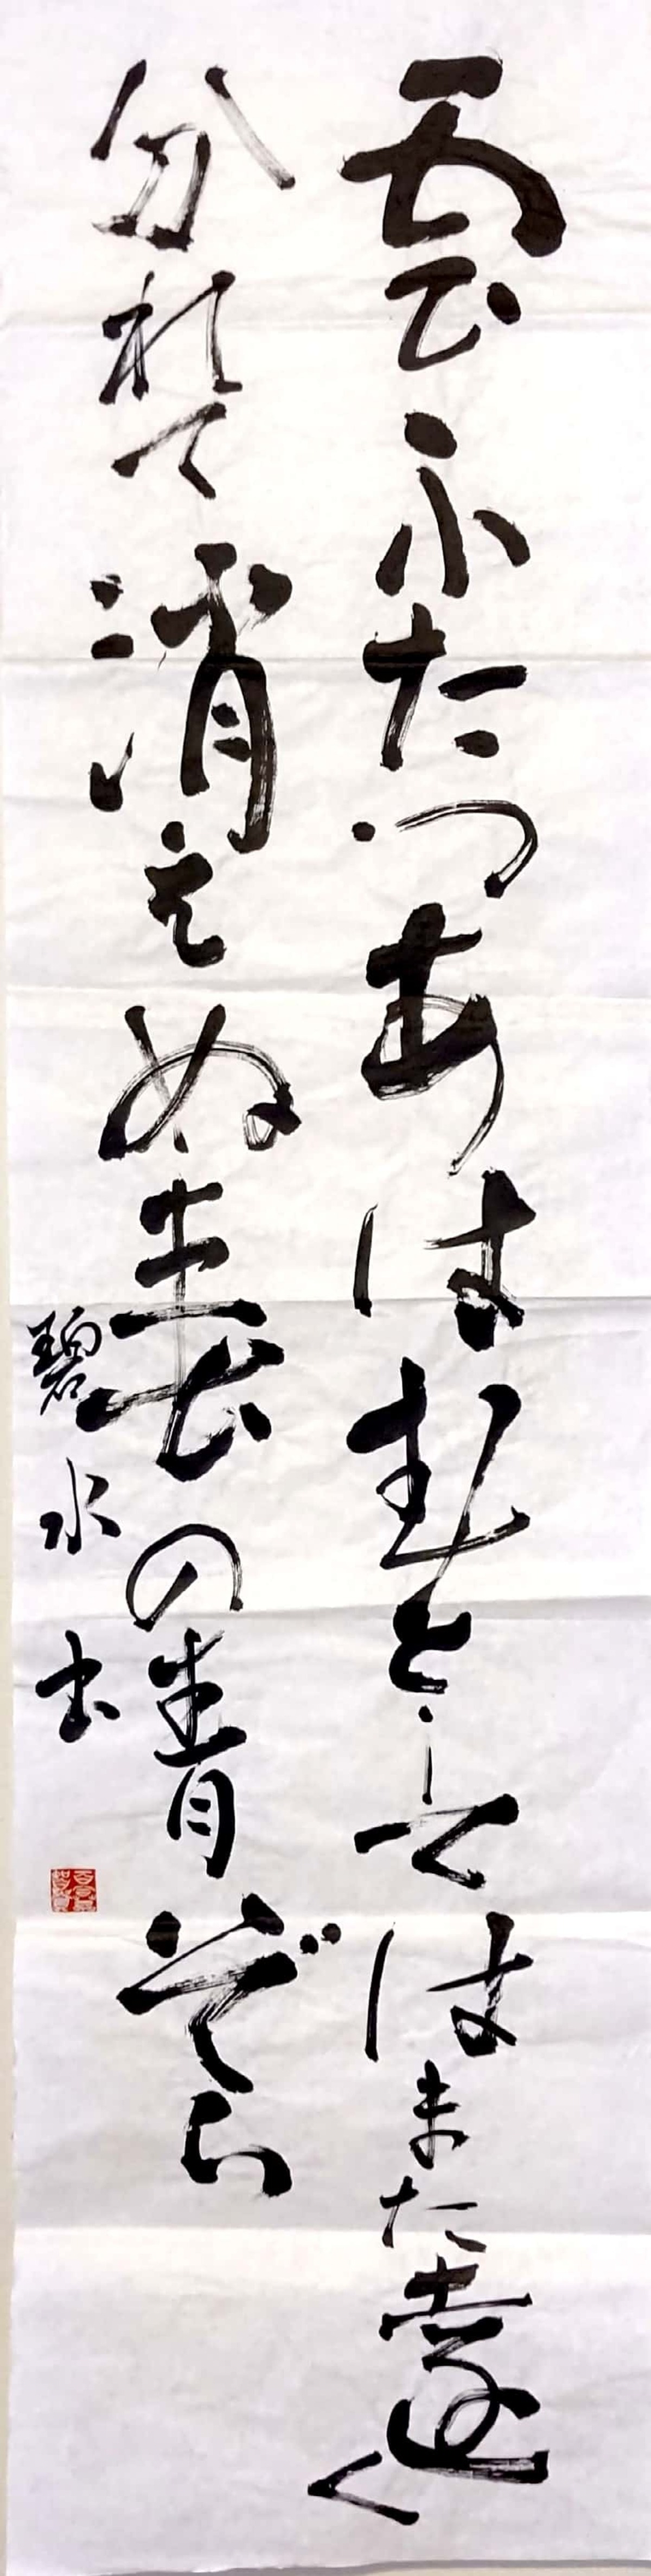 雲ふたつあはむとしてはまた遠く
分れて消えぬ春の青ぞら
碧水書